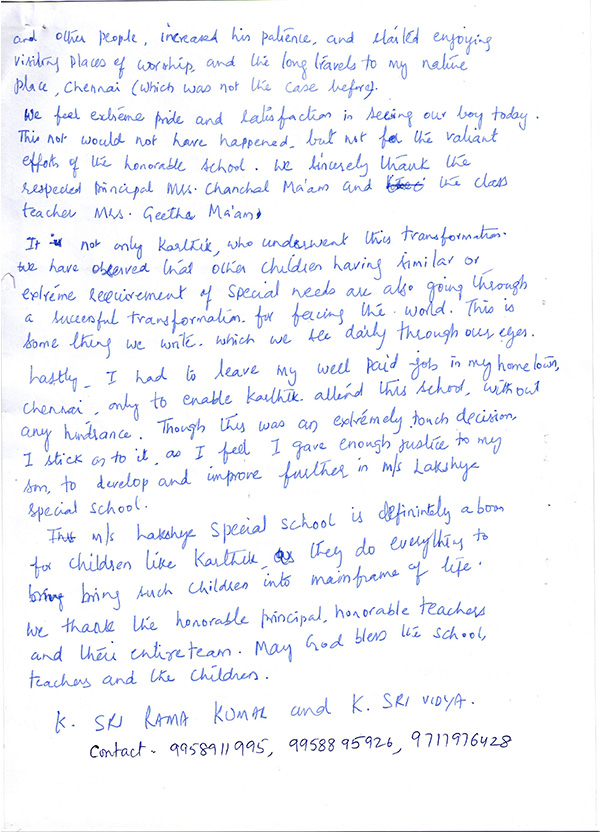 and other people, increased his patience, and started enjoying
visiting places of worship, and the long travels to my native
place, Chennai (which was not the case before).
We feel extreme pride and satisfaction in seeing our boy today.
This not would not have happened, but not for the valiant
efforts of the honorable school. We sincerely thank the
respected Principal Mrs. Chanchal Ma'am and the class
teacher Mrs. Geetha Ma'am.
It is not only Karthik, who underwent this transformation.
We have observed that other children having similar or
extreme requirement of special needs are also going through
a successful transformation for facing the world. This is
some thing we write. which we see daily through our eyes.
Lastly, I had to leave my well paid job in my home town,
Chennai, only to enable Karthik. attend this school, without
any hindrance. Though this was an extremely touch decision,
I stick on to it, as I feel I gave enough justice to my
son, to develop and improve further in m/s Lakshya
special school.
This m/s Lakshya special school is definintely a boon
for children like Karthik, as they do everything to
bring bring such children into mainframe of life.
We thank the honorable principal, honorable teachers
and their entire team. May God bless the school,
teachers and the children.
K. SRI RAMA KUMAR and K. SRI VIDYA.
Contact - 9958911995, 9958895926, 9717976428